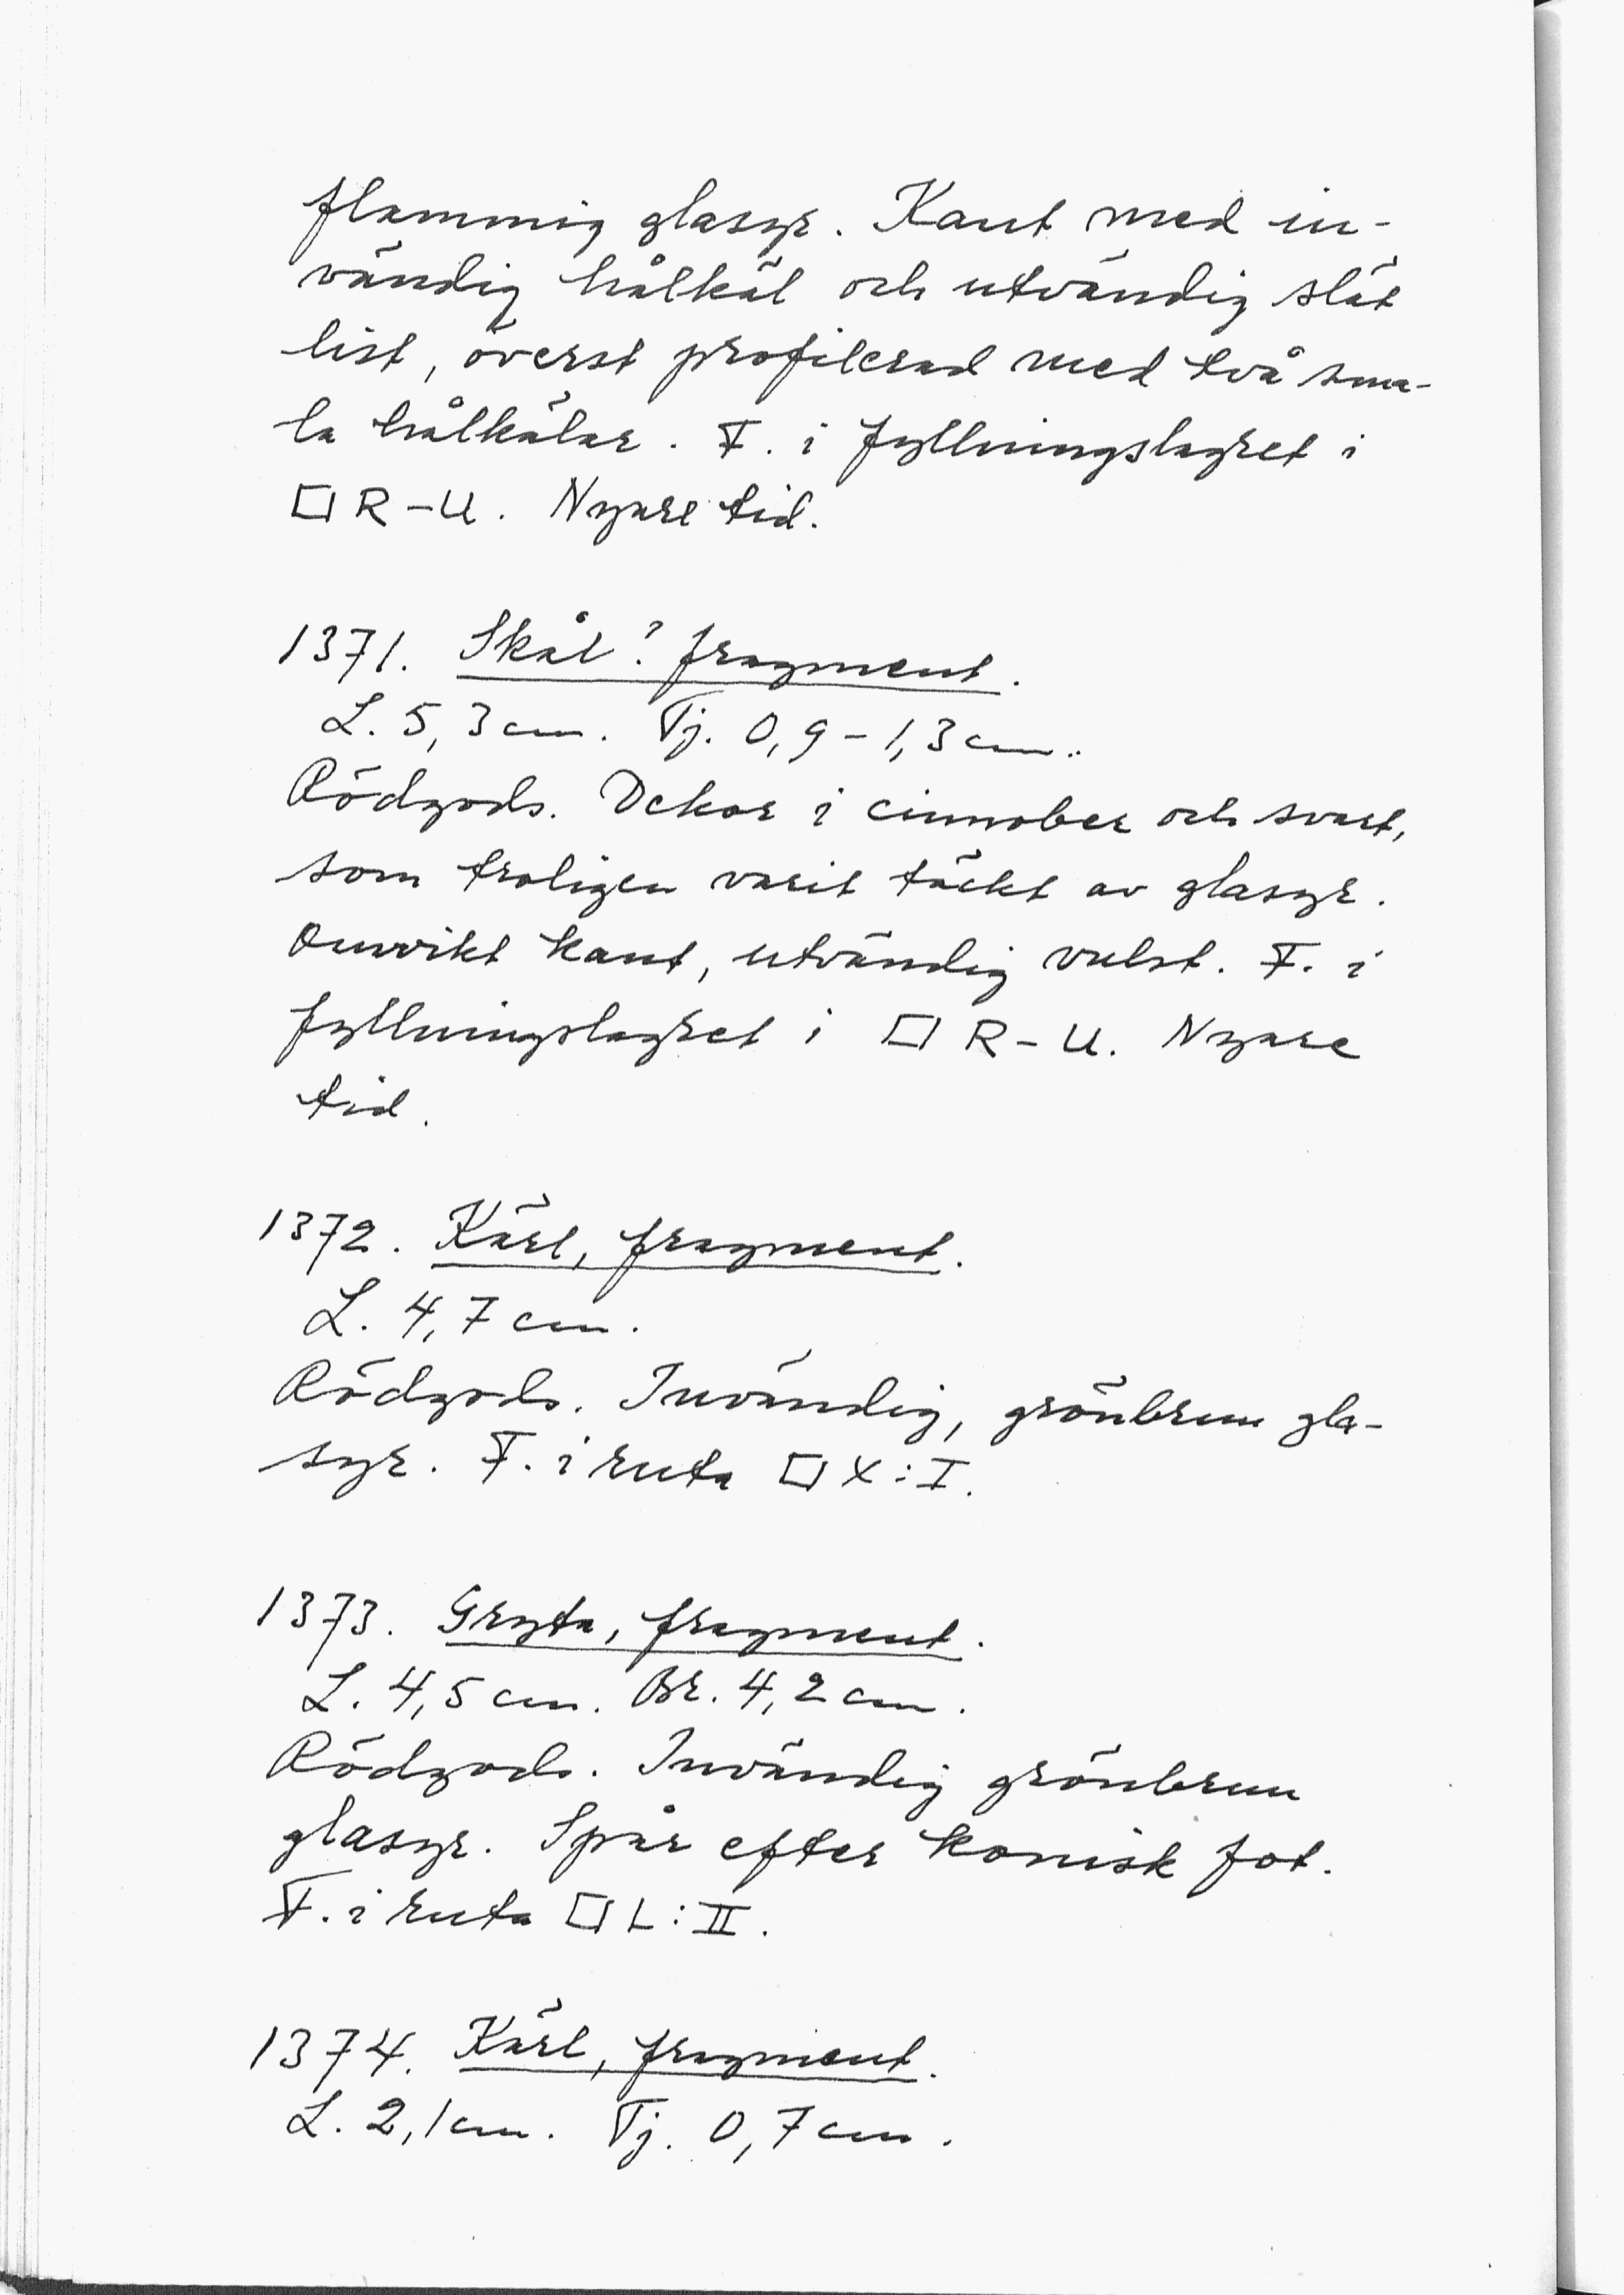 flammig glasyr. Kant med in-
vändig hålkäl och utvändig slät
list, överst profilerad med två sma-
la hålkälar. F. i fyllningslagret i
□ R-U. Nyare tid.
1371. Skål? fragment.
L. 5,3 cm. Tj. 0,9-1,3 cm.
Rödgods. Dekor i cinnober och svart,
som troligen varit täckt av glasyr.
Omvikt kant, utvändig vulst. F. i
fyllningslagret i □ R-U. Nyare
tid.
1372. Kärl, fragment.
L. 4,7 cm.
Rödgods. Invändig, grönbrun gla-
syr. F. i ruta □ X:I.
1373. Gryta, fragment.
L. 4,5 cm. Br. 4,2 cm.
Rödgods. Invändig grönbrun
glasyr. Spår efter konisk fot.
F. i ruta □ L:II.
1374. Kärl, fragment.
L. 2,1 cm. Tj. 0,7 cm.